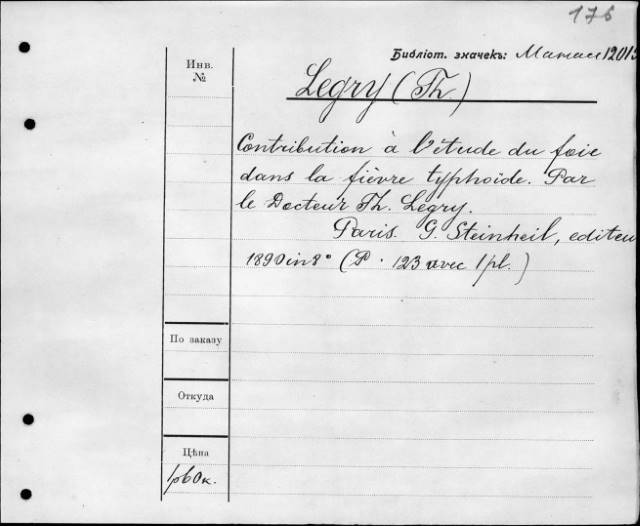 176
Библіот. значекъ:
Инв.
№
Legry (Th.)
Contribution à l'étude du foie
dans la fièvre typhoïde. Par
le Docteur Th. Legry.
Paris. G. Steinheil, editeu
1890 in 8° (P. 123 avec 1 pl.)
По заказу
Откуда
Цѣна
1 р 60 к.